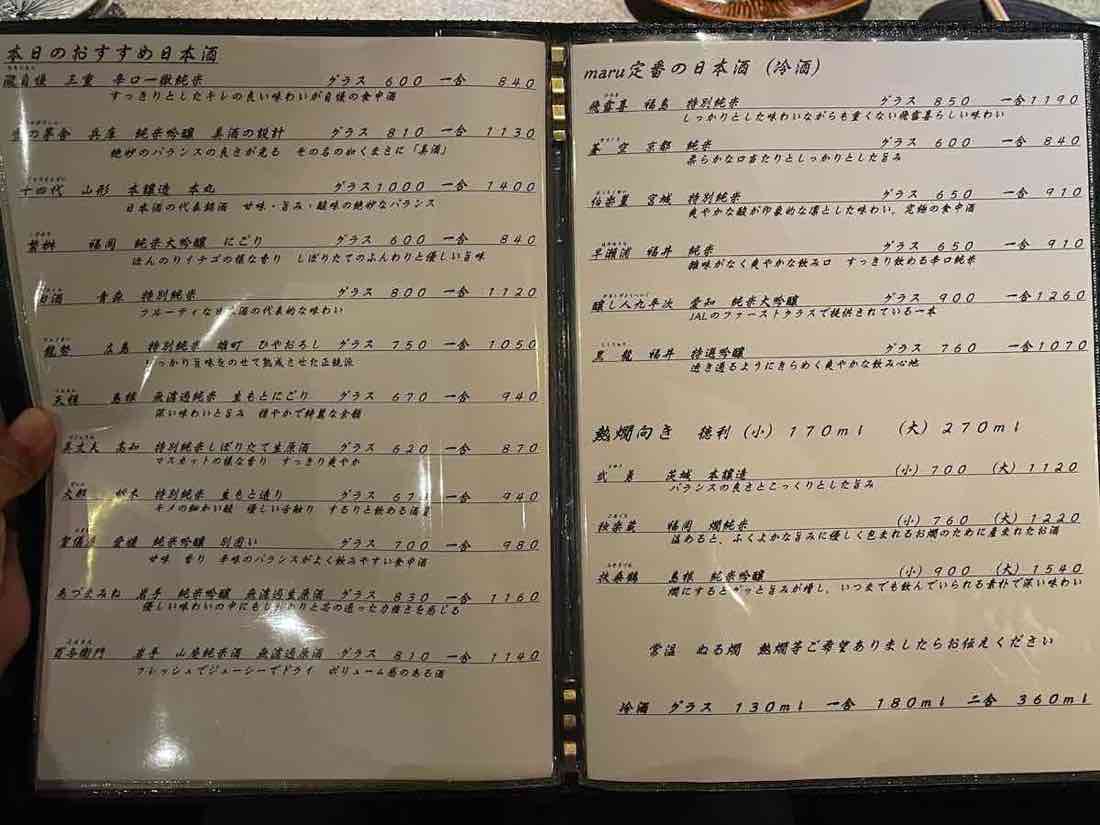 本日のおすすめ日本酒
自慢 三重 辛口一徹純米 グラス 600 一合 840
すっきりとしたキレの良い味わいが自慢の食中酒
の茅舎 兵庫 純米吟醸 美酒の設計 グラス 810 一合 1130
絶妙のバランスの良さが光る その名の如くまさに「美酒」
十四代 山形 本醸造 本丸 グラス1000 一合 1400
日本酒の代表銘酒 甘味・旨み・酸味の絶妙なバランス
繁桝 福岡 純米大吟醸 にごり グラス 600 一合 840
ほんのりイチゴの様な香り しぼりたてのふんわりと優しい旨味
田酒 青森 特別純米 グラス 800 一合 1120
フルーティな日本酒の代表的な味わい
龍勢 広島 特別純米 雄町 ひやおろし グラス 750 一合 1050
しっかり旨味をのせて熟成させた正統派
天穏 島根 無濾過純米 生もとにごり グラス 670 一合 940
深い味わいと旨み 穏やかで綺麗な余韻
美丈夫 高知 特別純米しぼりたて生原酒 グラス 620 一合 870
マスカットの様な香り すっきり爽やか
大那 栃木 特別純米 生もと造り グラス 67 一合 940
キメの細かい酸 優しい舌触り するりと飲める酒
賀儀屋 愛媛 純米吟醸 別囲い グラス 700 一合 980
甘味 香り 辛味のバランスがよく飲みやすい食中酒
あづまみね 岩手 純米吟醸 無濾過生原酒 グラス 830 一合 1160
優しい味わいの中にもしっかりと芯の通った力強さを感じる
百与衛門 岩手 山廃純米酒 無濾過原酒 グラス 810 一合 1140
フレッシュでジューシーでドライ ボリューム感のある酒
maru定番の日本酒 (冷酒)
飛露喜 福島 特別純米 グラス 850 一合1190
しっかりとした味わいながらも重くない飛露喜らしい味わい
蒼空 京都 純米 グラス 600 一合 840
柔らかな口当たりとしっかりとした旨み
伯楽星 宮城 特別純米 グラス 650 一合 910
爽やかな酸が印象的な凛とした味わい、究極の食中酒
早瀬浦 福井 純米 グラス 650 一合 910
雑味がなく爽やかな飲み口 すっきり飲める辛口純米
醸し人九平次 愛知 純米大吟醸 グラス 900 一合1260
JALのファーストクラスで提供されている一本
黒龍 福井 特選吟醸 グラス 760 一合1070
透き通るようにきらめく爽やかな飲み心地
熱燗向き 徳利(小)170ml (大)270ml
武勇 茨城 本醸造 (小)700 (大)1120
バランスの良さとこっくりとした旨み
独楽蔵 福岡 燗純米 (小)760 (大)1220
温めると、ふくよかな旨みに優しく包まれるお燗のために産まれたお酒
扶桑鶴 島根 純米吟醸 (小)900 (大)1540
燗にするとグッと旨みが増し、いつまでも飲んでいられる素朴で深い味わい
常温 ぬる燗 熱燗等ご希望ありましたらお伝えください
冷酒 グラス 130ml 一合 180ml 二合 360ml